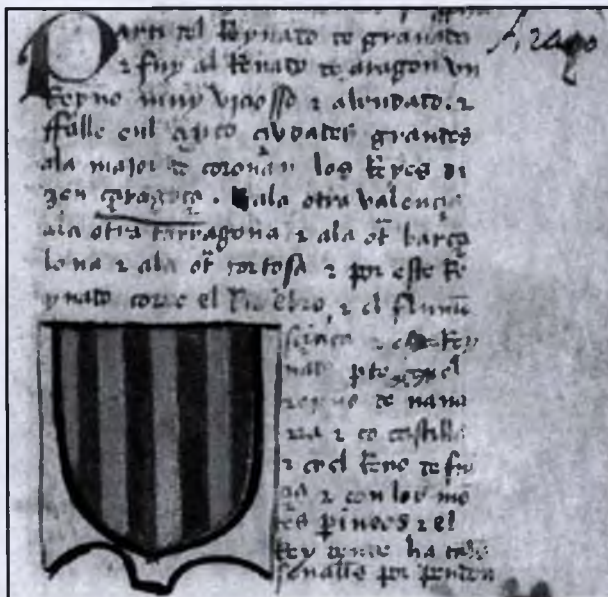 Parti del Reynado de granada
Arago
z fuy al Renado de aragon vn
Reyno muy viciosso z abondado. z
ffalle enl çinco çiudades grandes
ala major do coronan los Reyes di
zen çaragoça. z ala otra valençia
ala otra tarragona z ala otª barça
lona z ala otª tortosa z por este Re
ynado corre el Rio ebro, z el flumen
z este Rey
nado parte con el
reyno de nava
rra z co castilla
z con el Reno de fra
çia z con los mo
tes pineos z el
Rey dende ha tales
señalles por pendon